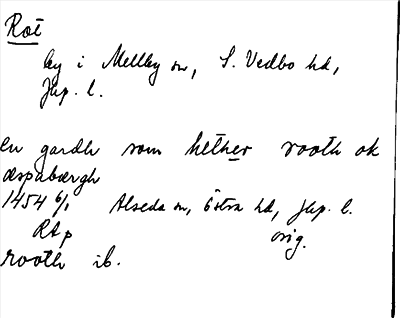 Rot
by i Mellby sn, S. Vedbo hd,
Jkp. l.
en gardh som hether rooth ok
æspabærgh
1454 6/1 Alseda sn, Östra hd, Jkp. l.
RAp orig.
rooth ib.